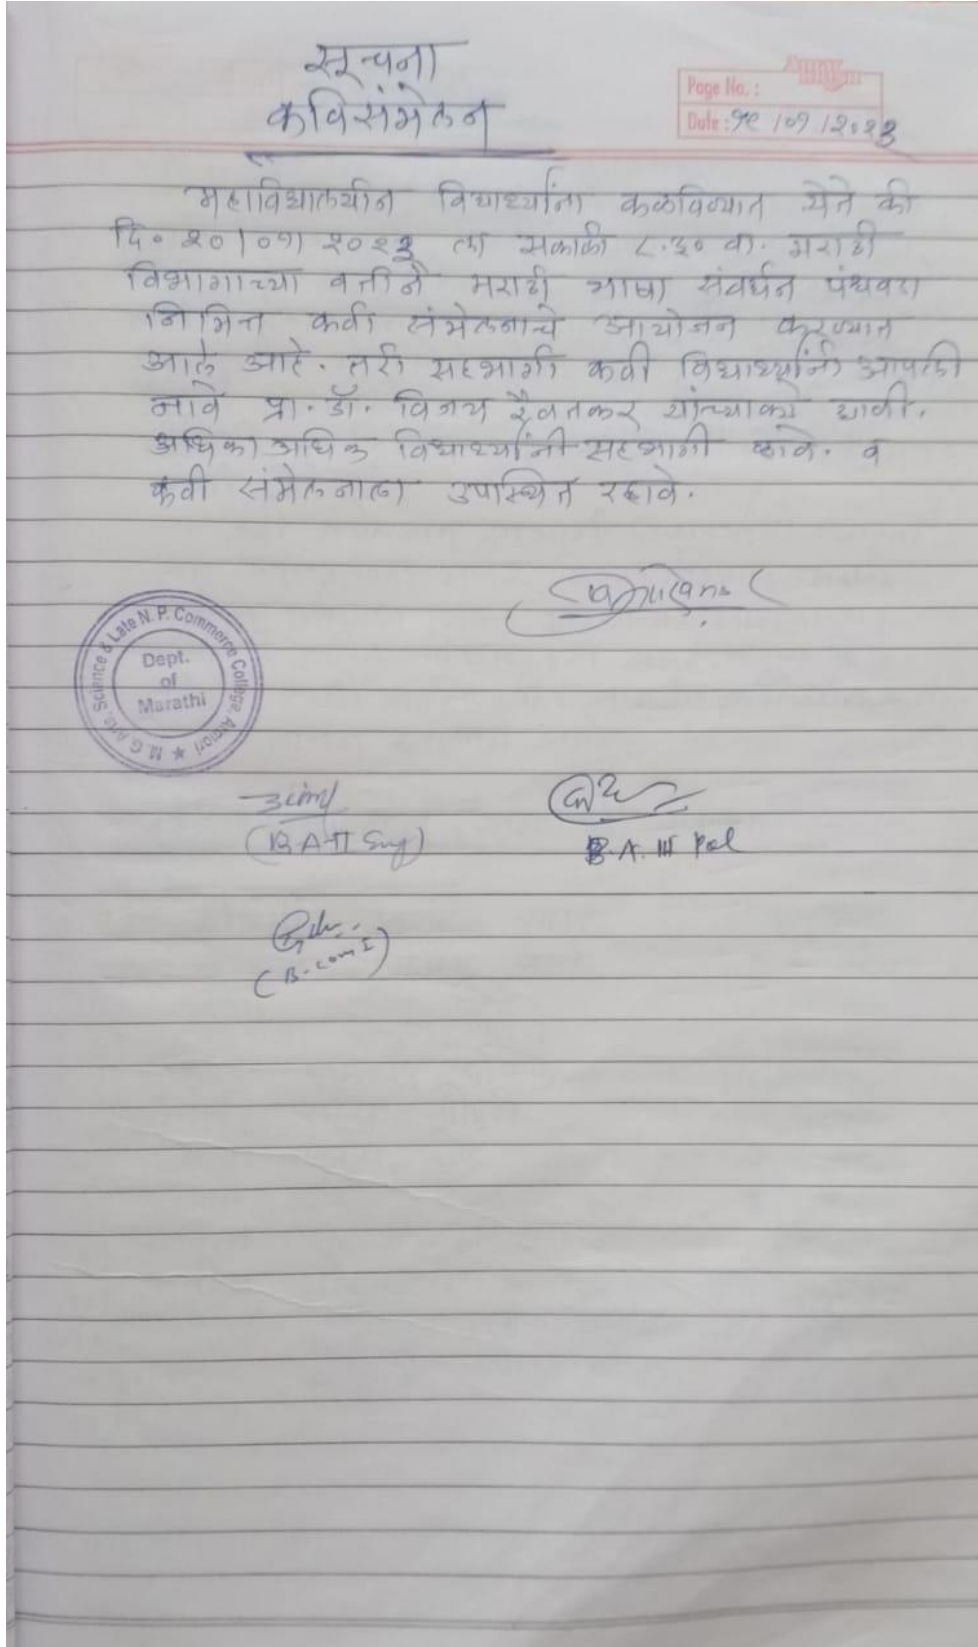 सूचना
कविसंमेलन
Page No. :
Date : १९ / ०१ / २०२३
महाविद्यालयीन विद्यार्थ्यांना कळविण्यात येते की
दि. २०।०१। २०२३ ला सकाळी ८.३० वा. मराठी
विभागाच्या वतीने मराठी भाषा संवर्धन पंधरवडा
निमित्त कवी संमेलनाचे आयोजन करण्यात
आले आहे. तरी सहभागी कवी विद्यार्थ्यांनी आपली
नावे प्रा. डॉ. विजय रैवतकर यांच्याकडे द्यावी.
अधिका अधिक विद्यार्थ्यांनी सहभागी व्हावे. व
कवी संमेलनाला उपस्थित रहावे.
M. G. Arts, Science & Late N. P. Commerce College, Armori ★
Dept.
of
Marathi
(B.A-II Eng)
B. A. III Pol
(B-com I)